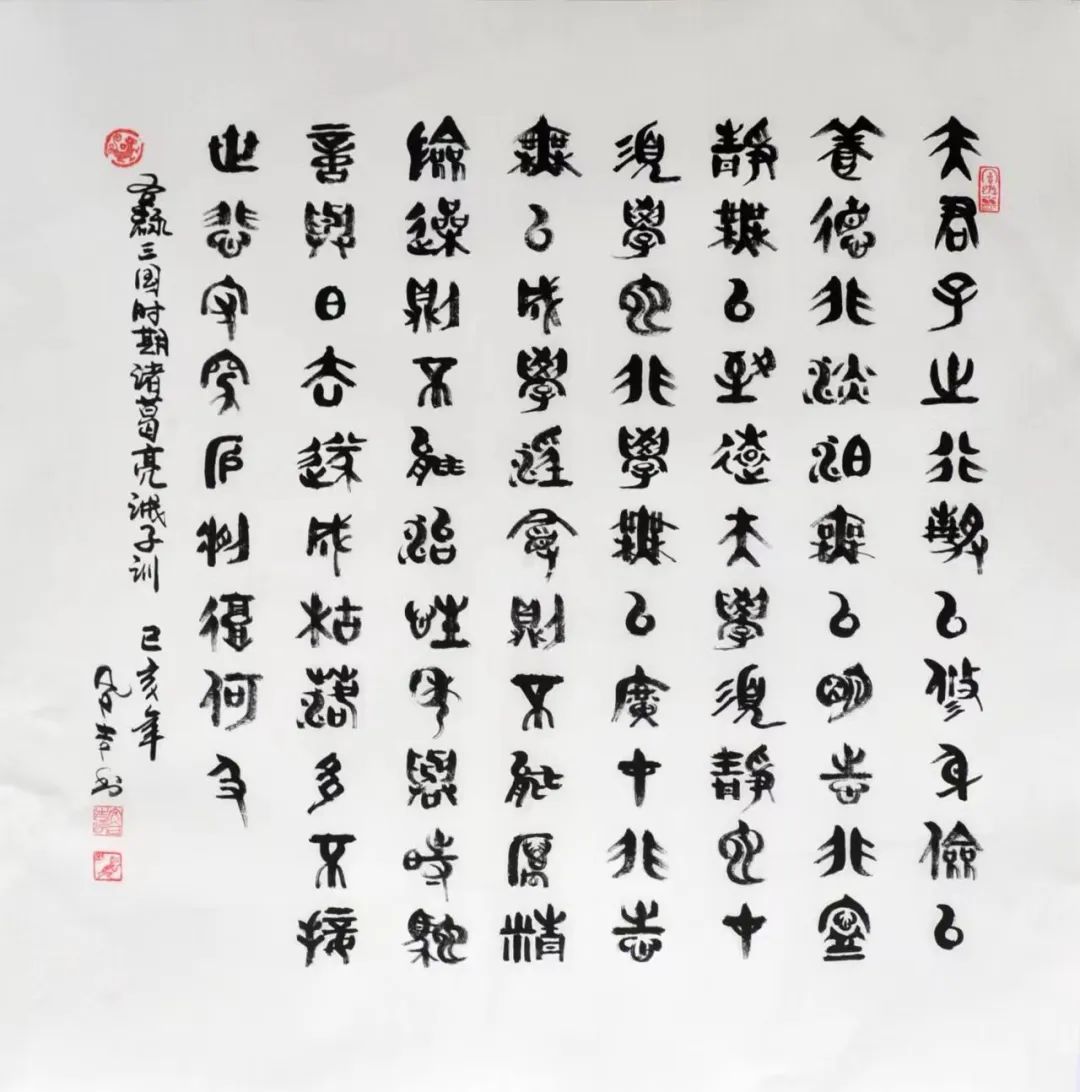 夫君子之行靜以修身儉以
養德非淡泊無以明志非寧
靜無以致遠夫學須靜也才
須學也非學無以廣才非志
無以成學淫則不能厲精
險躁則不能治性年與時馳
意與日去遂成枯落多不接
世悲守窮廬將復何及
右録三国时期诸葛亮诫子训 己亥年